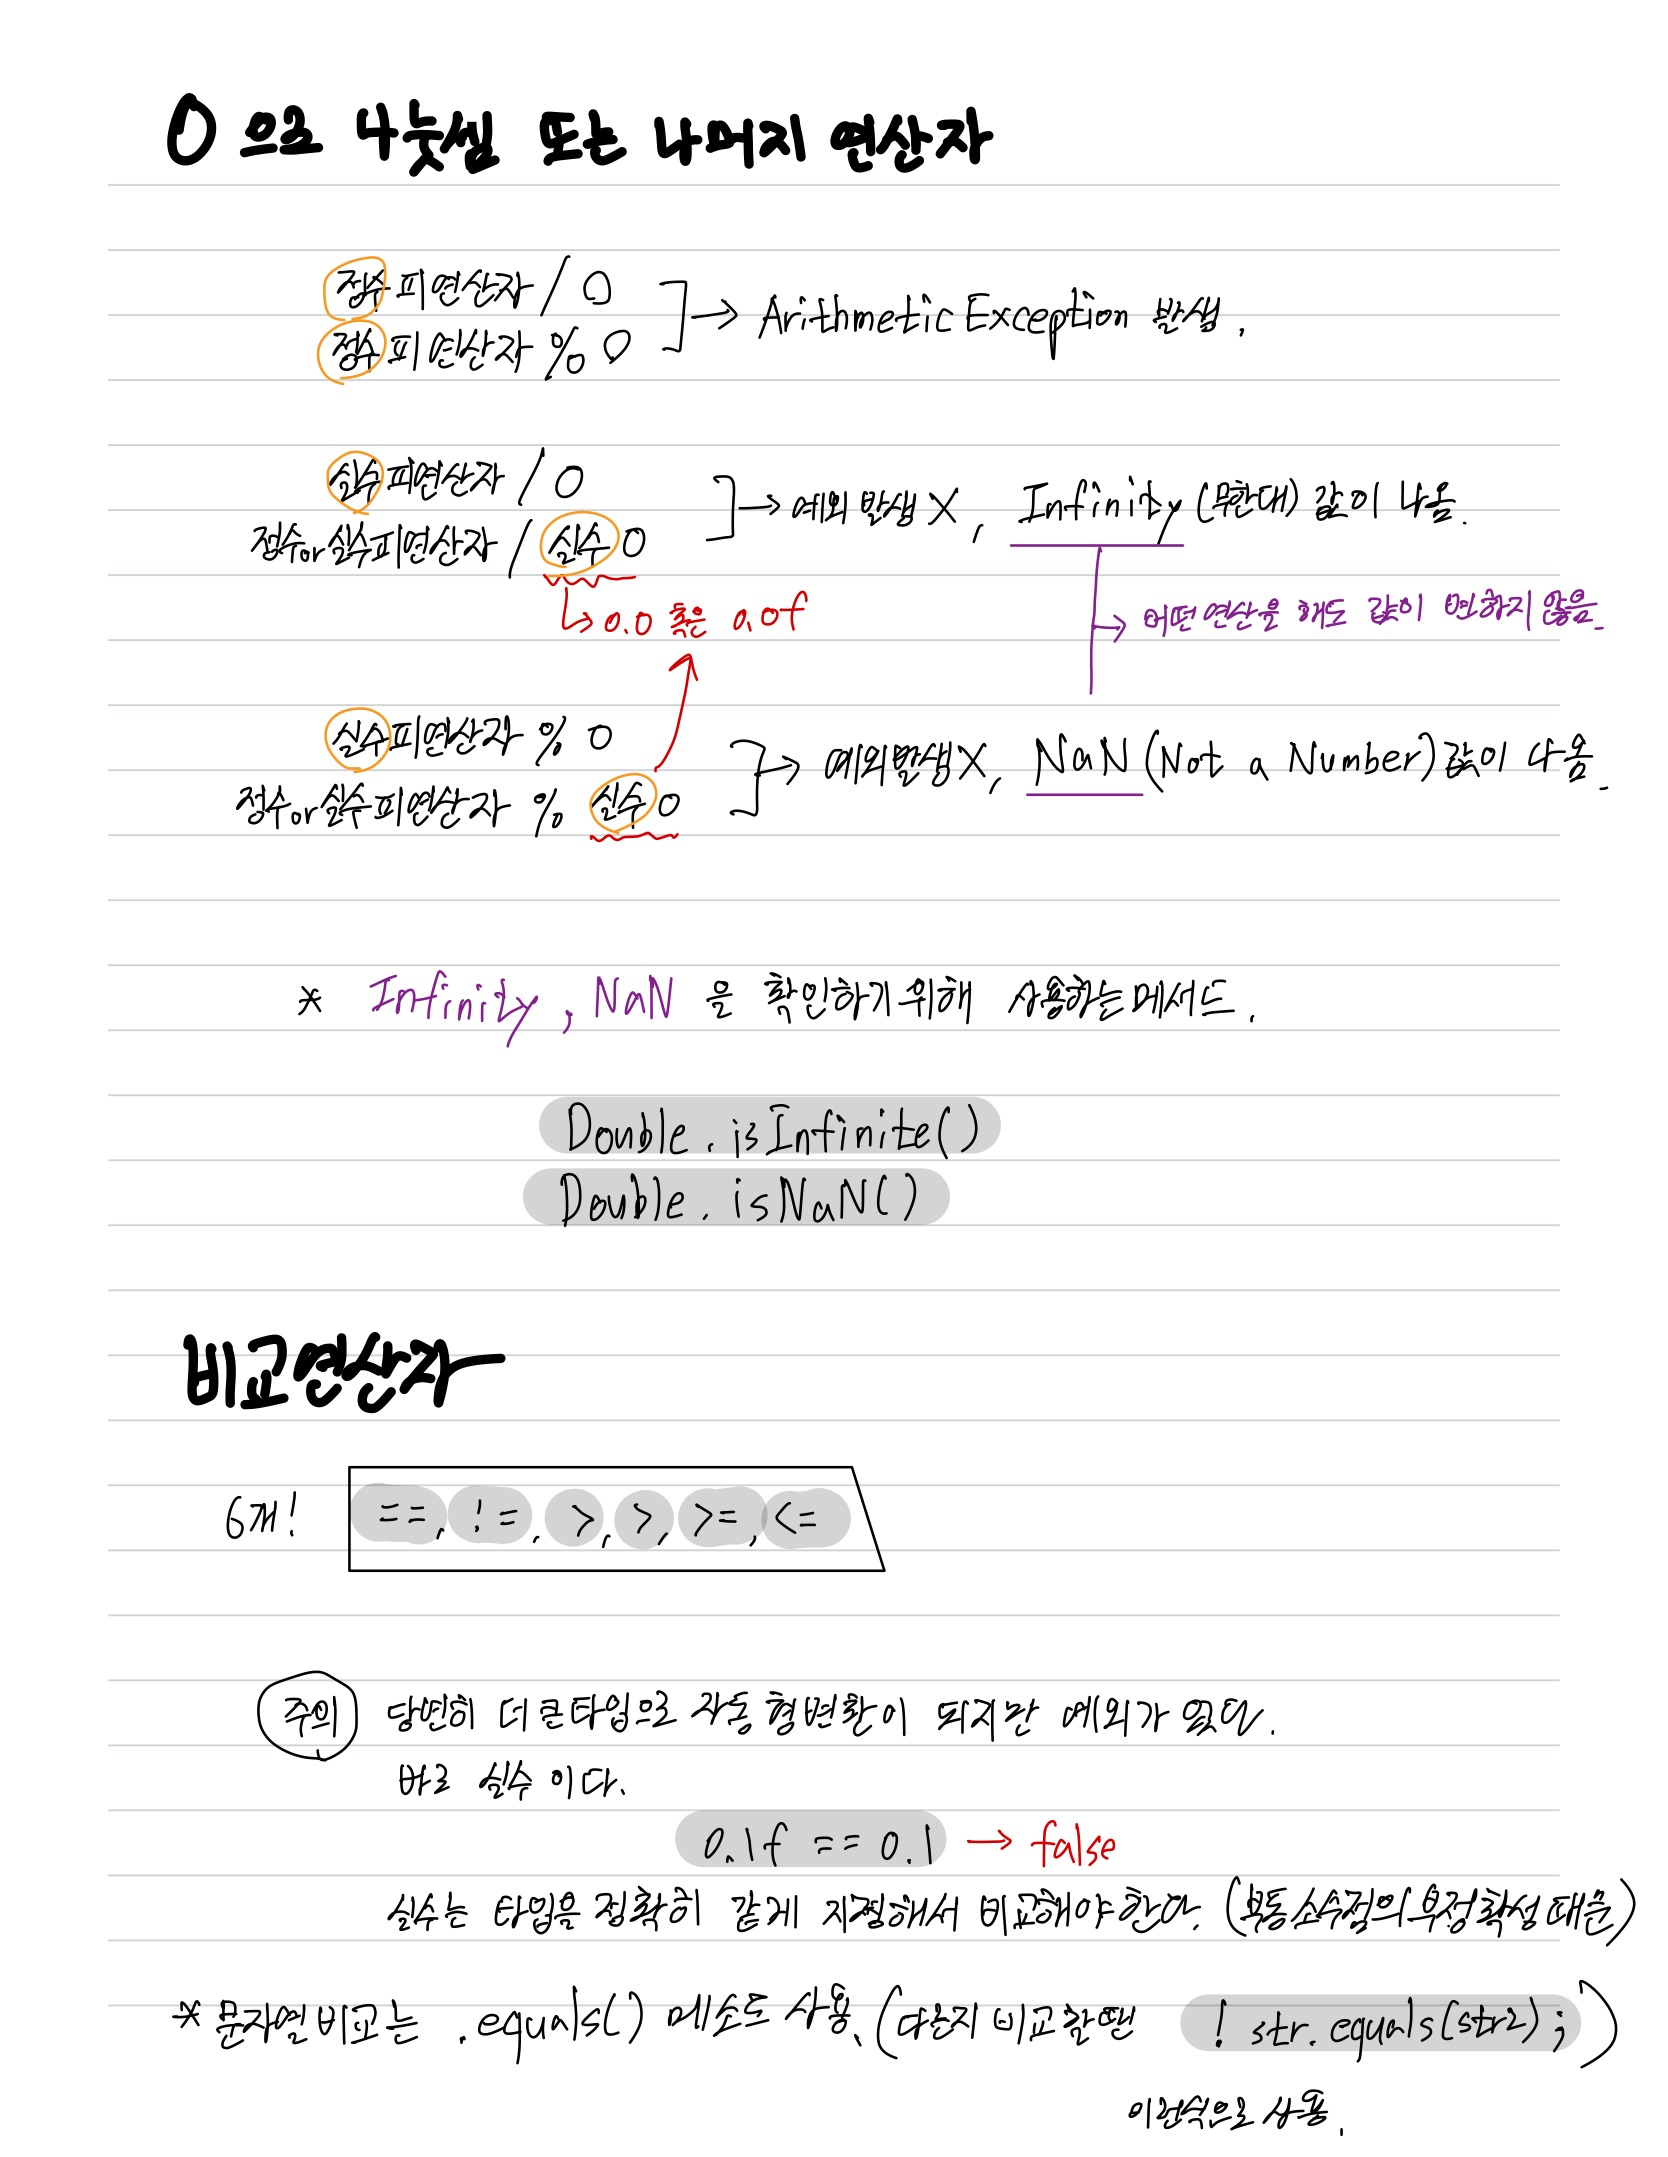 0 으로 나눗셈 또는 나머지 연산자
정수피연산자 / 0
정수피연산자 % 0
→ Arithmetic Exception 발생.
실수피연산자 / 0
정수or실수피연산자 / 실수 0
→ 예외 발생 X, Infinity (무한대) 값이 나옴.
↳ 0.0 혹은 0.0f
→ 어떤 연산을 해도 값이 변하지 않음.
실수피연산자 % 0
정수or실수피연산자 % 실수 0
→ 예외발생X, NaN (Not a Number) 값이 나옴.
* Infinity, NaN 을 확인하기위해 사용하는 메서드.
Double.isInfinite()
Double.isNaN()
비교연산자
6개! ==, !=, >, >, >=, <=
주의 당연히 더 큰타입으로 자동 형변환이 되지만 예외가 있다.
바로 실수 이다.
0.1f == 0.1 → false
실수는 타입을 정확히 같게 지정해서 비교해야한다. (부동소수점의 부정확성 때문)
* 문자열비교는 .equals() 메소드 사용. (다른지 비교할땐 ! str.equals(str2);)
이런식으로 사용.